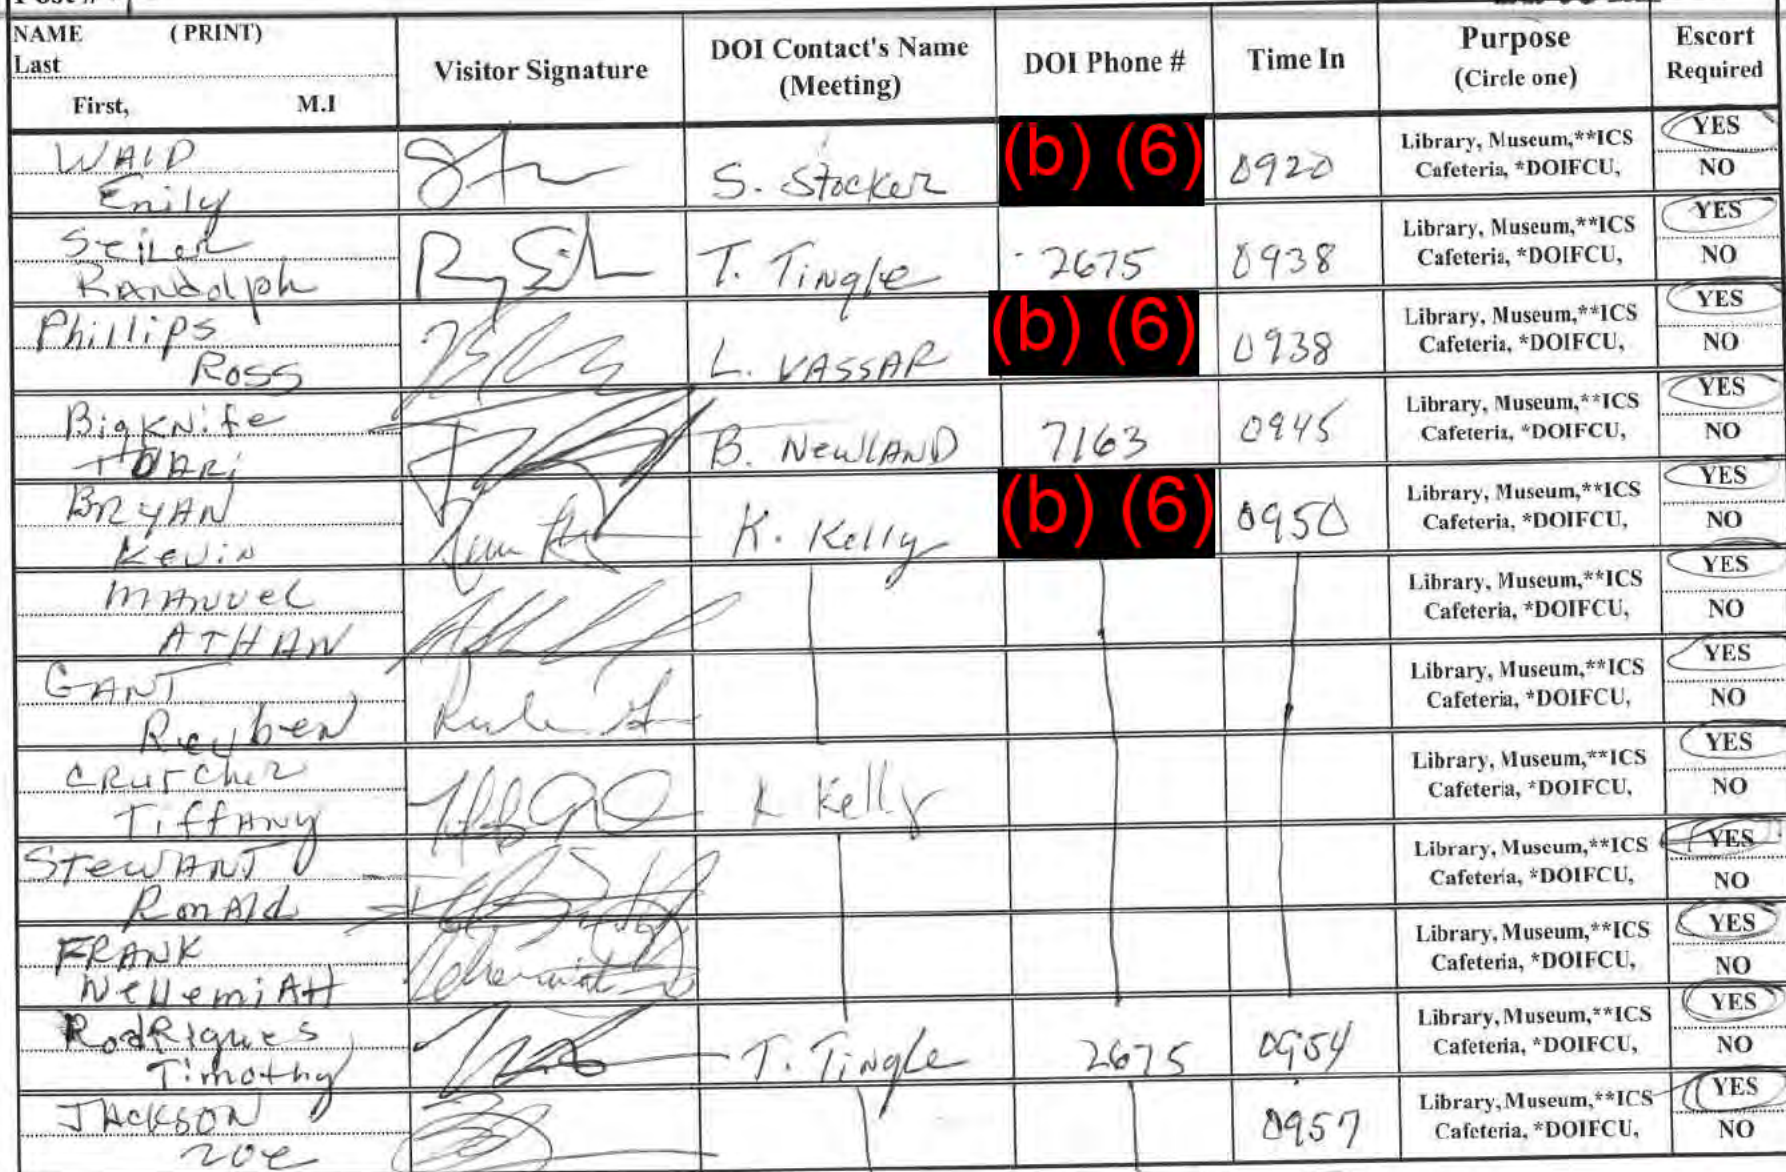 Post #
NAME (PRINT)
Last
First, M.I
Visitor Signature
DOI Contact's Name
(Meeting)
DOI Phone #
Time In
Purpose
(Circle one)
Escort
Required
WAID
Emily
S. Stocker
(b) (6)
0920
Library, Museum,**ICS
Cafeteria, *DOIFCU,
YES
NO
Seiler
RANdolph
T. Tingle
2675
0938
Library, Museum,**ICS
Cafeteria, *DOIFCU,
YES
NO
Phillips
Ross
L. VASSAR
(b) (6)
0938
Library, Museum,**ICS
Cafeteria, *DOIFCU,
YES
NO
BigKNife
B. NewLAND
7163
0945
Library, Museum,**ICS
Cafeteria, *DOIFCU,
YES
NO
BRYAN
Kevin
K. Kelly
(b) (6)
0950
Library, Museum,**ICS
Cafeteria, *DOIFCU,
YES
NO
MANUEL
ATHAN
Library, Museum,**ICS
Cafeteria, *DOIFCU,
YES
NO
GANT
Reuben
Library, Museum,**ICS
Cafeteria, *DOIFCU,
YES
NO
CRUTCHER
TiffANy
K Kelly
Library, Museum,**ICS
Cafeteria, *DOIFCU,
YES
NO
STewART
RonAld
Library, Museum,**ICS
Cafeteria, *DOIFCU,
YES
NO
FRANK
NeHemiAH
Library, Museum,**ICS
Cafeteria, *DOIFCU,
YES
NO
RodRigues
Timothy
T. Tingle
2675
0954
Library, Museum,**ICS
Cafeteria, *DOIFCU,
YES
NO
JACKSON
Zoe
0957
Library, Museum,**ICS
Cafeteria, *DOIFCU,
YES
NO